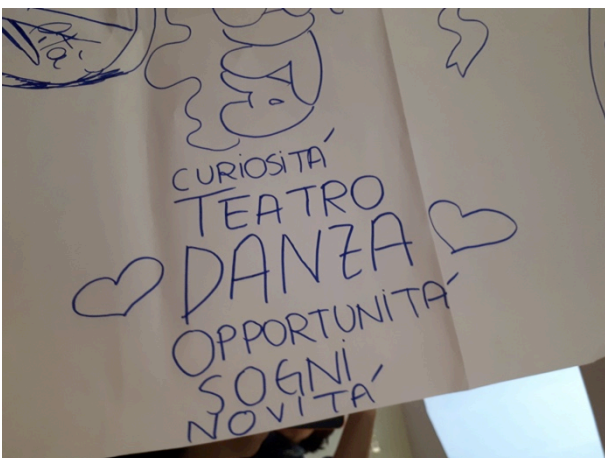 CURIOSITÁ
TEATRO
DANZA
OPPORTUNITÁ
SOGNI
NOVITÁ